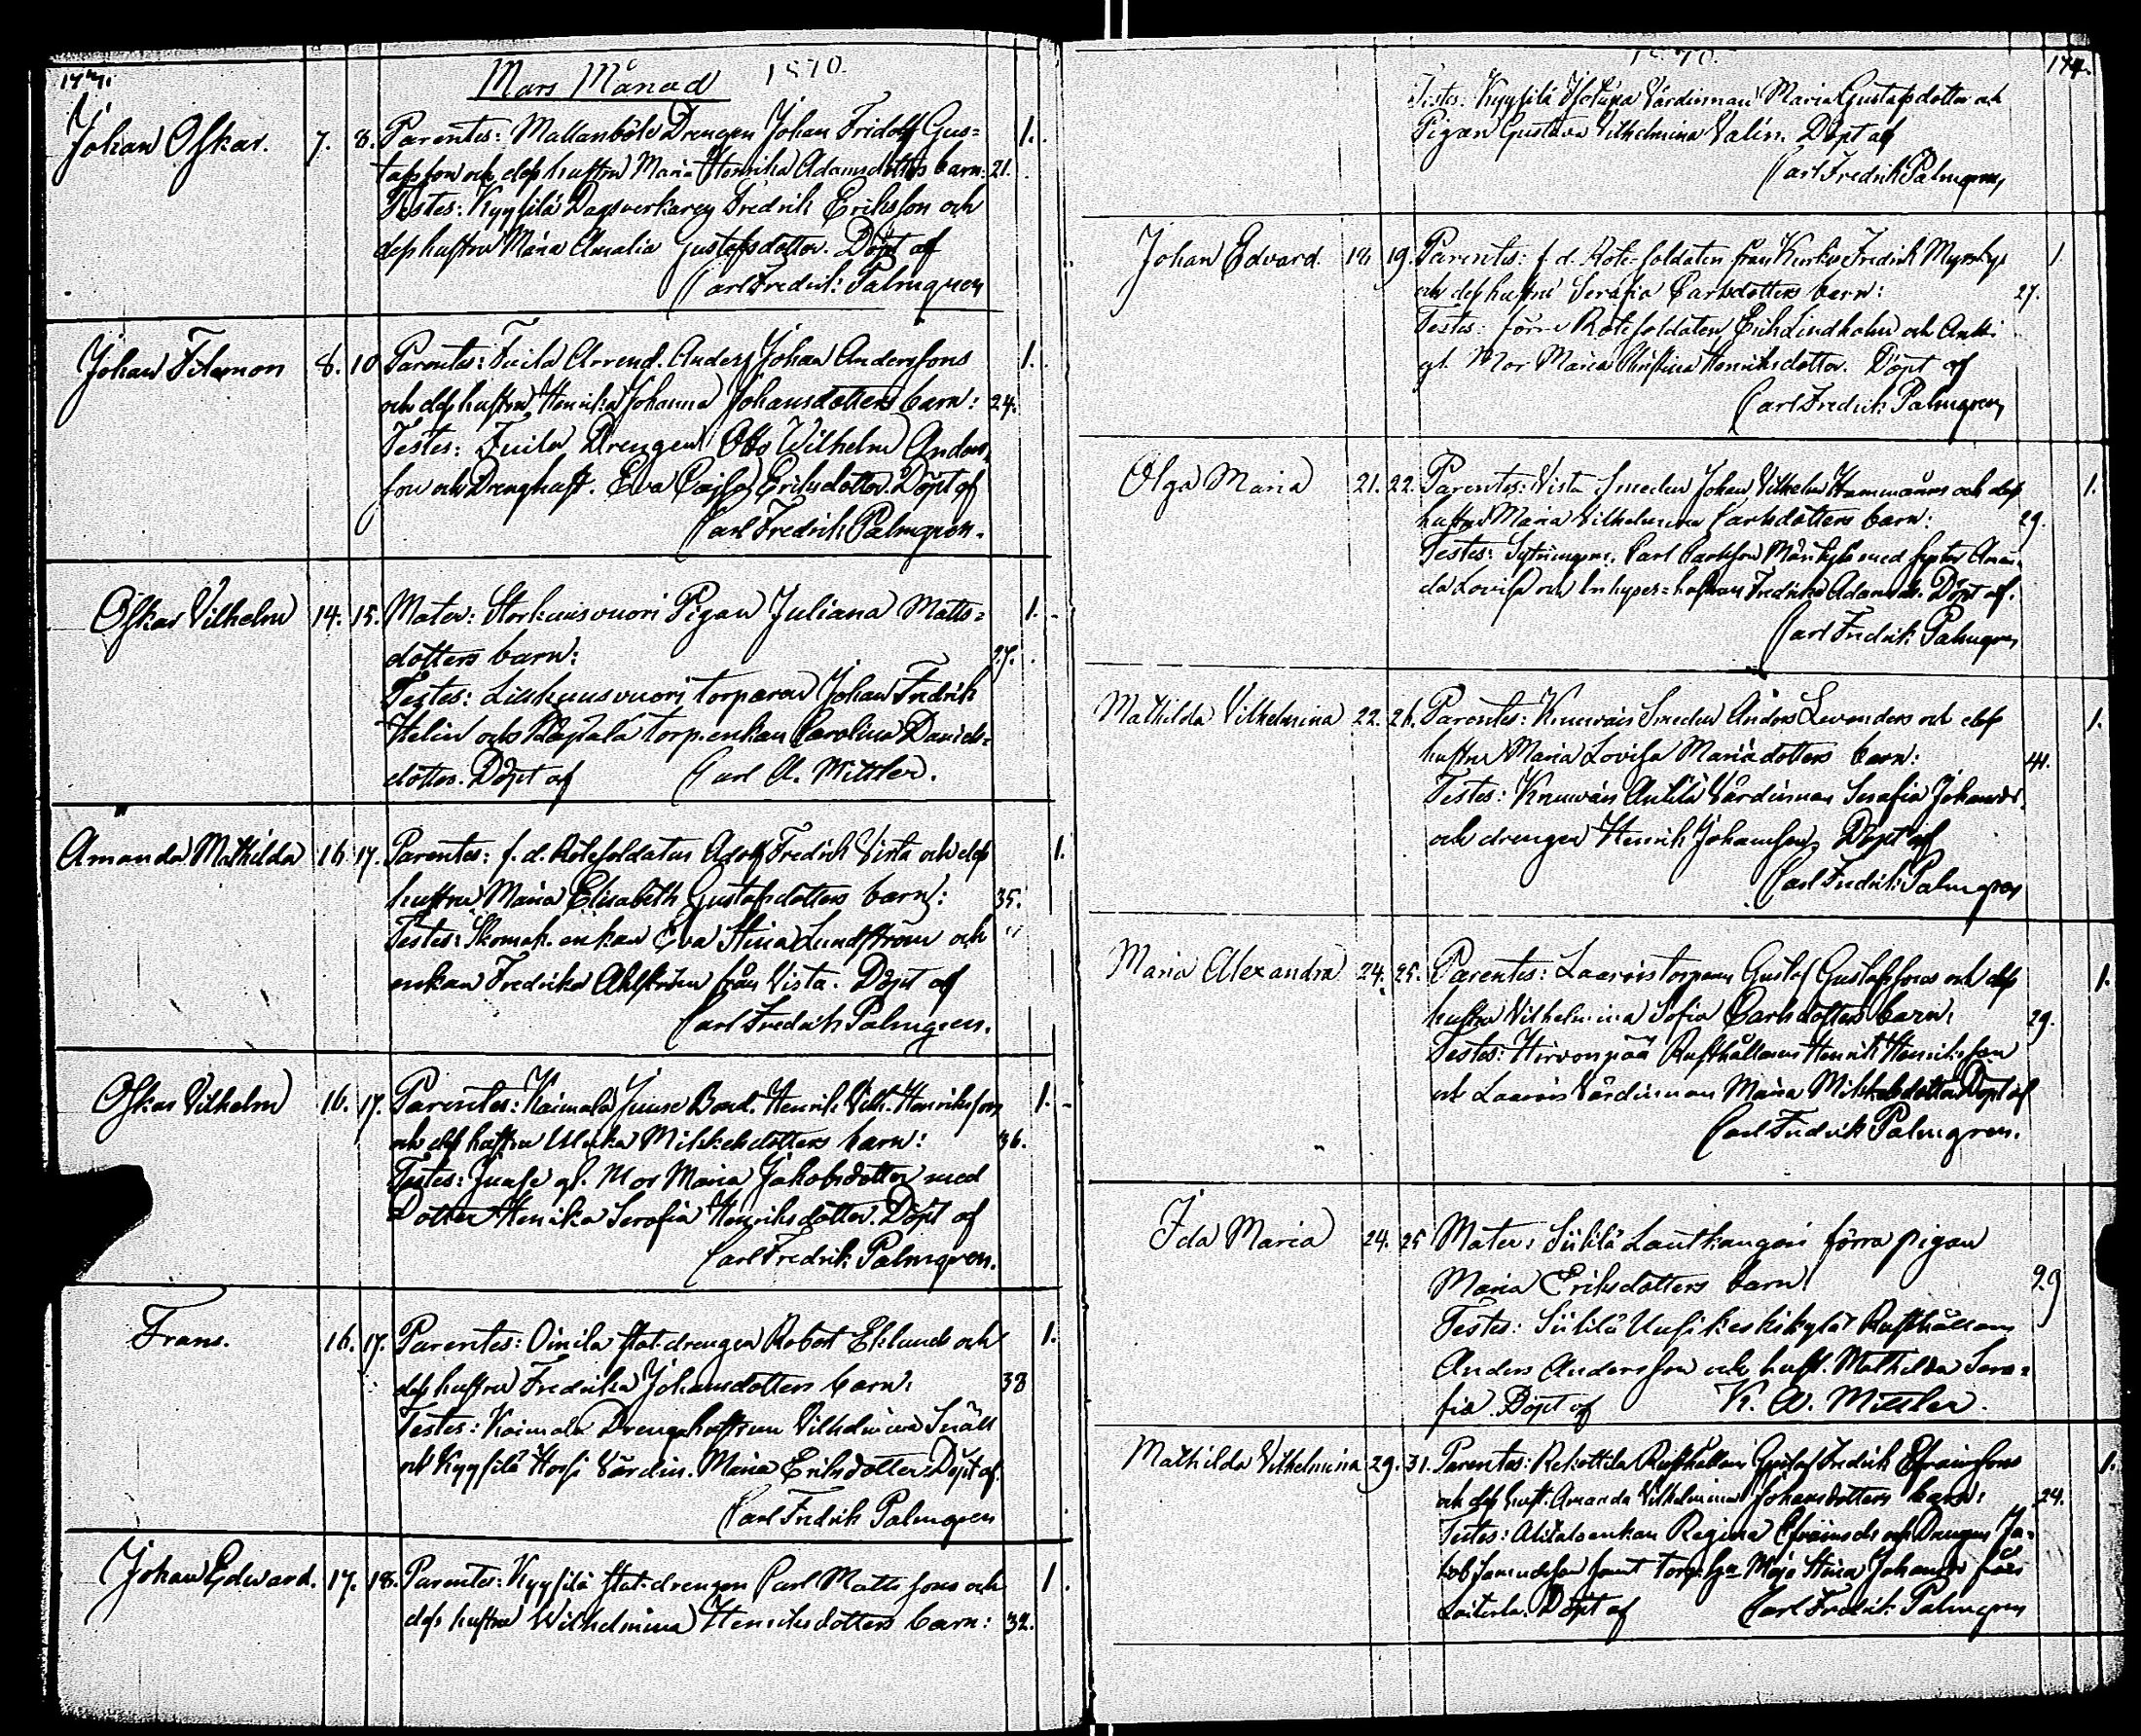 Mars Månad 1870.
Johan Oskar. 7. 8. Parentes: Mallanböle Drengen Johan Fridolf Gus= 1.
tafsson och dess hustru Maria Henrika Adamsdotters barn: 21.
Testes: Kyysilä Dagsverkaren Fredrik Eriksson och
dess hustru Maria Amalia Gustafsdotter. Döpt af
Carl Fredrik Palmgren
Johan Filemon 8. 10 Parentes: Arrend. Anders Johan Anderssons 1.
och dess hustru Henrika Johanna Johansdotters barn: 24.
Testes: Drengen Otto Wilhelm Anders
son och Drenghust. Eva Cajsa Eriksdotter. Döpt af
Carl Fredrik Palmgren.
Oskar Vilhelm 14. 15. Mater: Pigan Juliana Matts= 1.
dotters barn: 27.
Testes: torparen Johan Fredrik
Helin och torp.enkan Carolina Daniels=
dotter. Döpt af Carl A. Mittler.
Amanda Mathilda 16. 17. Parentes: f. d. Rotesoldaten Adolf Fredrik Vista och dess 1.
hustru Maria Elisabeth Gustafsdotters barn: 35.
Testes: Skomak. enkan Eva Stina Lundström och
enkan Fredrika Ahlström från Vista. Döpt af
Carl Fredrik Palmgren.
Oskar Vilhelm 16. 17. Parentes: Kaimala Juuse Bond. Henrik Vilh. Henriksson 1.
och dess hustru Ulrika Mikkelsdotters barn: 36.
Testes: Juuse gl. Mor Maria Jakobsdotter med
Dotter Henrika Serafia Henriksdotter. Döpt af
Carl Fredrik Palmgren.
Frans. 16. 17. Parentes: Oinila stat-drengen Robert Eklunds och 1.
dess hustru Fredrika Johansdotters barn: 38
Testes: Kaimala Drengshustrun Vilhelmina Snäll
och Kyysilä Värdin. Maria Eriksdotter Döpt af
Carl Fredrik Palmgren
Johan Edward. 17. 18. Parentes: Kyysilä stat-drengen Carl Mattssons och 1.
dess hustru Wilhelmina Henriksdotters barn: 32.
1870. 174.
Testes: Kyysilä Värdinnan Maria Gustafsdotter och
Pigan Gustava Vilhelmina Valin. Döpt af
Carl Fredrik Palmgren
Johan Edvard. 18 19. Parentes: f. d. Rote-soldaten från Fredrik 1.
och dess hustru Serafia Carlsdotters barn: 27.
Testes: förre Rotesoldaten Erik Lindholm och Antti
gl. Mor Maria Christina Henriksdotter. Döpt af
Carl Fredrik Palmgren
Olga Maria 21. 22. Parentes: Vista Smeden Johan Vilhelm Hammarens och dess 1.
hustru Maria Vilhelmina Carlsdotters barn: 29.
Testes: Carl Carlsson med hustru Aman=
da Lovisa och Inhyses= Fredrika Adamsd. Döpt af.
Carl Fredrik Palmgren
Mathilda Vilhelmina 22. 26. Parentes: Smeden Anders Levanders och dess 1.
hustru Maria Lovisa Mariædotters barn: 41.
Testes: Anttila Värdinnan Serafia Johansd.
och drengen Henrik Johansson, Döpt af
Carl Fredrik Palmgren
Maria Alexandra 24. 25. Parentes: Laarois torparen Gustaf Gustafssons och dess 1.
hustru Vilhelmina Sofia Carlsdotters barn: 29.
Testes: Hirvonpää Rusthållaren Henrik Henriksson
och Laarois Värdinnan Maria Mikkelsdotter. Döpt af
Carl Fredrik Palmgren.
Ida Maria 24. 25 Mater: Lautkangari förra pigan
Maria Eriksdotters barn 29
Testes: Uusikeskikylä Rusthållaren
Anders Andersson och hust. Mathilda Sera=
fia. Döpt af K. A. Mittler.
Mathilda Vilhelmina 29. 31. Parentes: Rekottila Rusthållaren Gustaf Fredrik Efraimssons 1.
och dess hust. Amanda Vilhelmina Johansdotters barn: 24.
Testes: Alitalo enkan Regina Efraimsdr och Drengen Ja=
kob Samuelsson samt torp. Maja Stina Johansdr från
Döpt af Carl Fredrik Palmgren